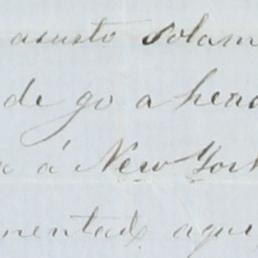 asusto solam
de go a head
a á New York
mentado aqui